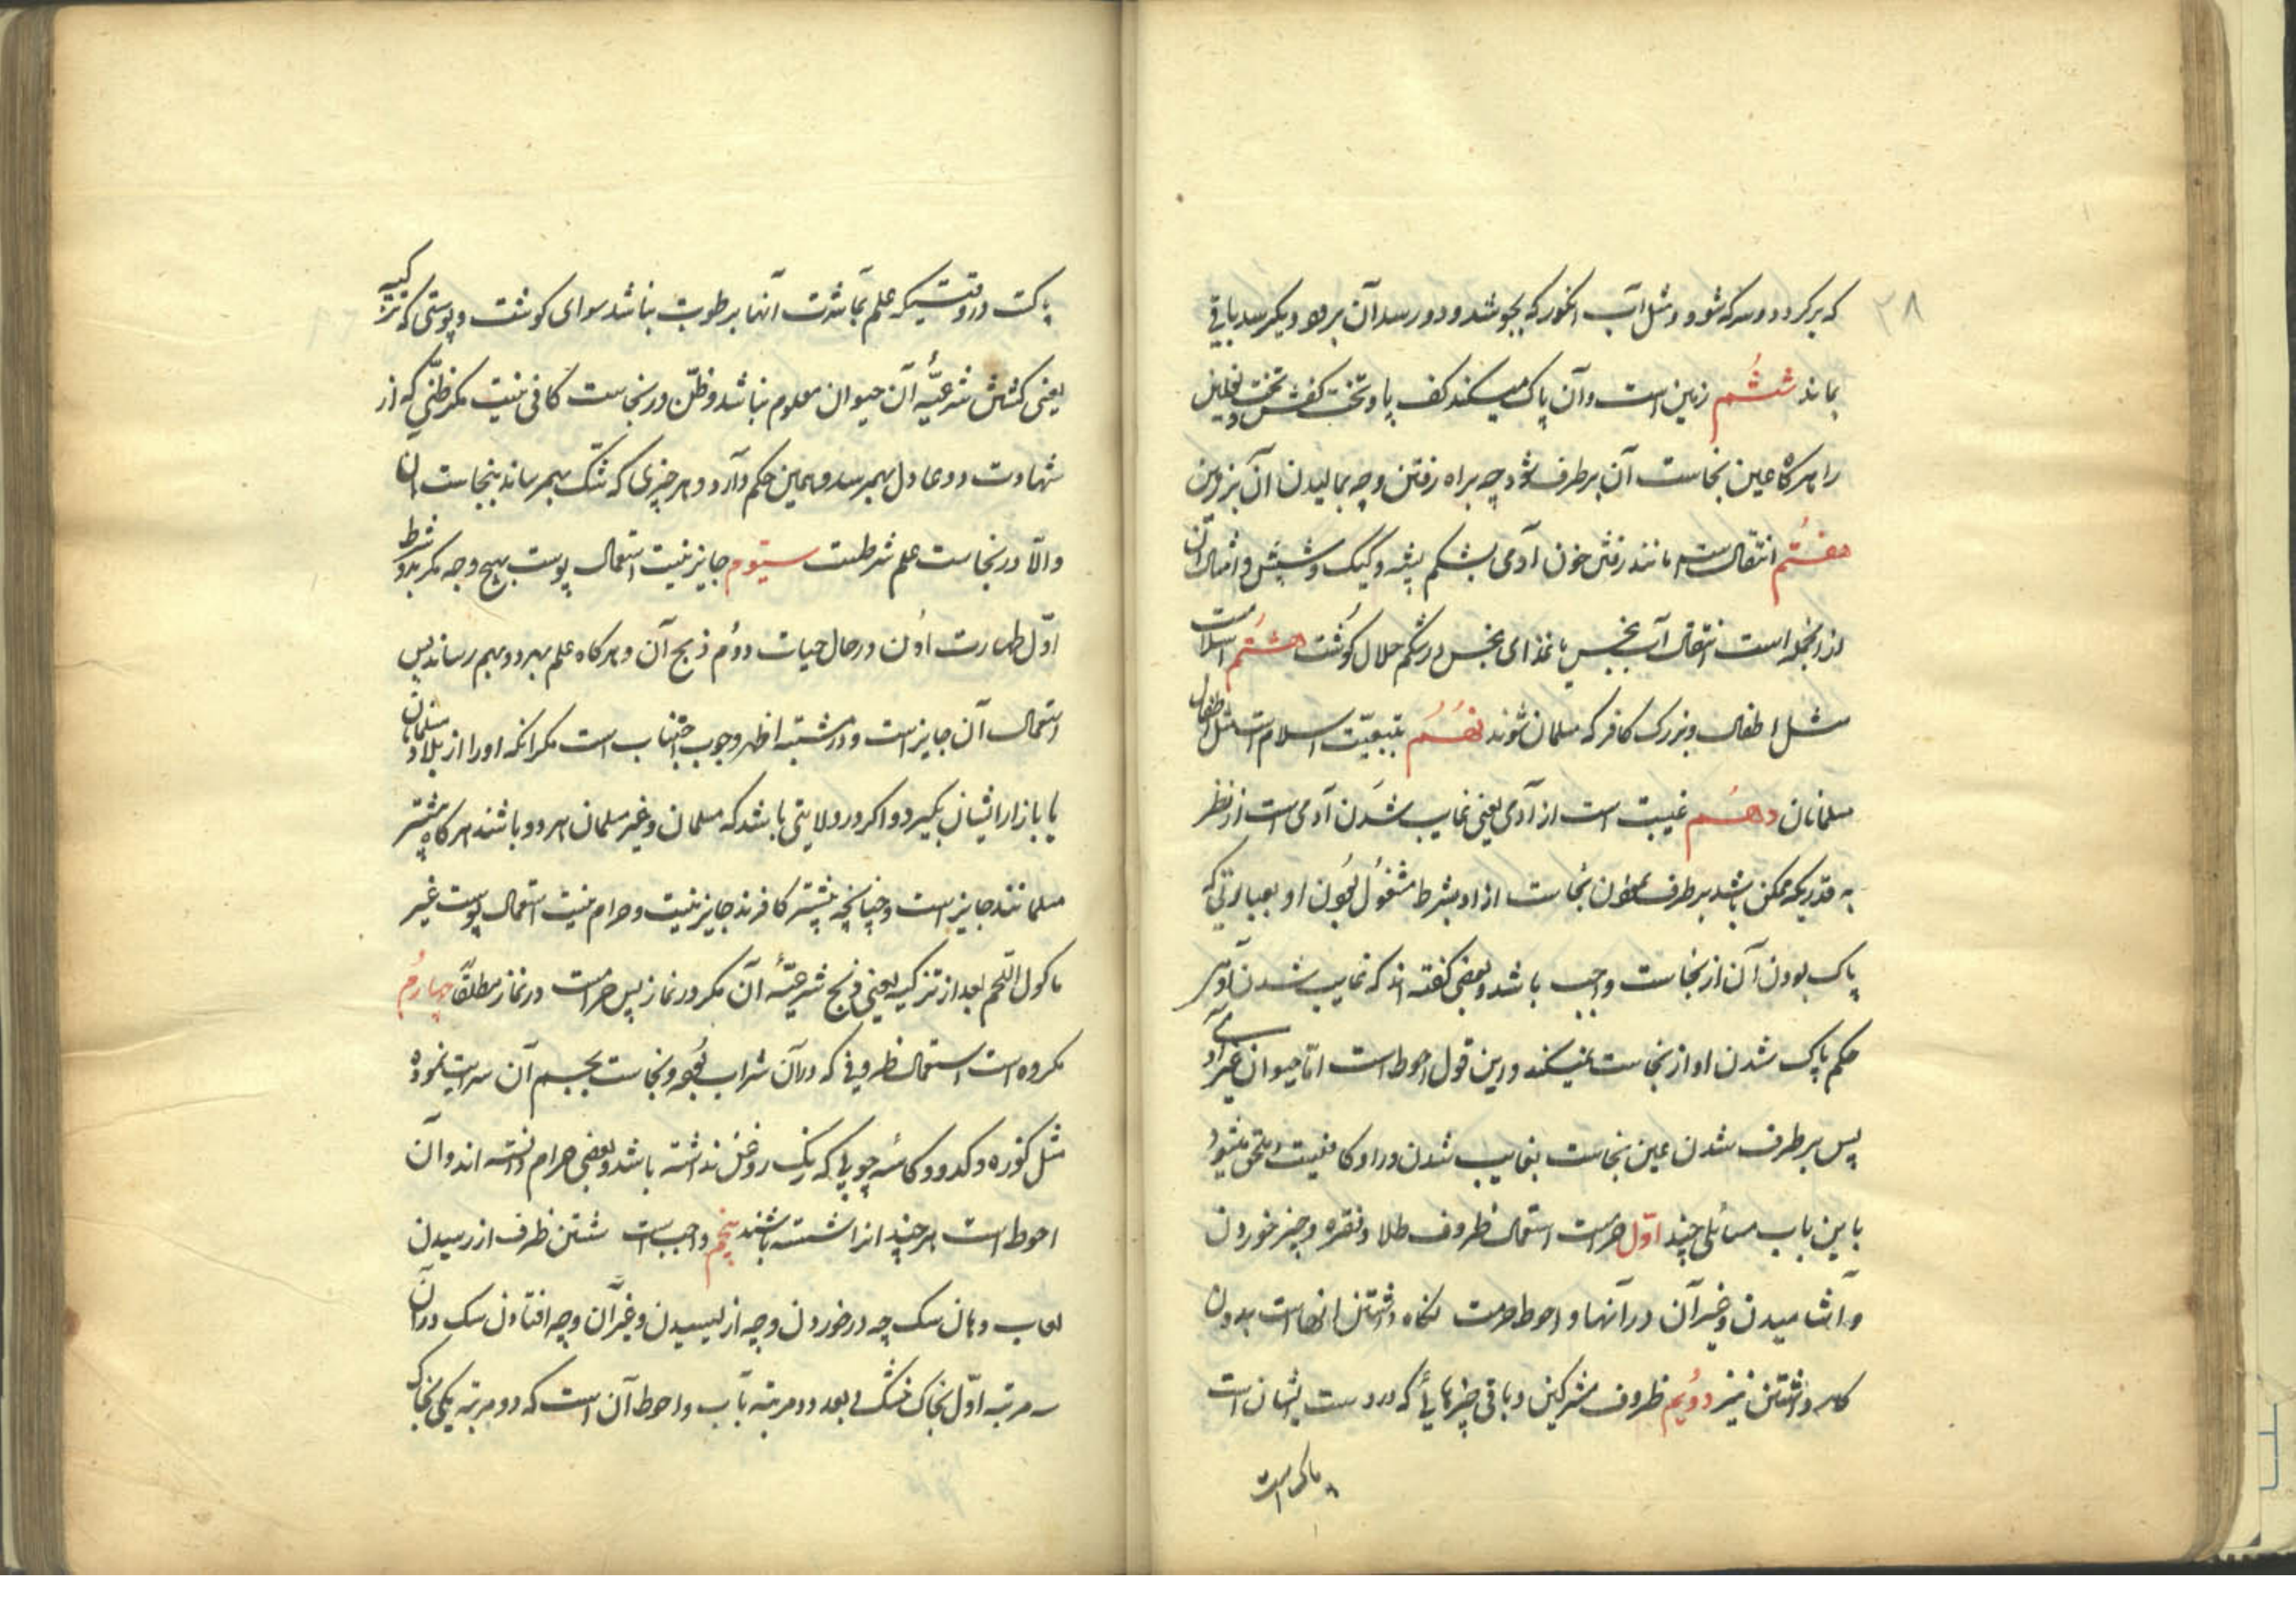 ۲۸
که برکردد و سرکه شود و مثل آب انکور که بجوشد و دو ربعد آن برود و یکربعد باقی
بماند ششُم زمین است و آن پاک میکند کف پا و تخت کفش و تخت نعلین
را هرکاه عین نجاست آن برطرف شود چه براه رفتن و چه بمالیدن آن بزمین
هفتُم انتقالست مانند رفتن خون آدمی بشکم پشه و کیک و شپش و امثال آن
از انجمله است انتقال آب نجس یا غذای نجس در شکم حلال کوُشت هشتُم اسلامست
مثل اطفال و بزرک کافر که مسلمان شوند نهُمُ بتبعیّت اسلام است مثل اطفال
مسلمانان دهُم غیبت است از آدمی یعنی غایب شدَن آدمی است از نظر
به قدریکه ممکن باشد برطرف نمودن نجاست از او بشرط مشغوُل بوُدن او بعبارتی که
پاک بودن آن از نجاست واجب باشد و بعضی کفته اند که غایب شدن آدمی
حکم پاک شدن او از نجاست نمیکند و این قول احوط است امّا حیوان غیر آدمی
پس برطرف شدن عین نجاست بغایب شدن در او کافیست و ملحق میشود
باین باب مسائلی چند اوّل حرامست استعمال ظروف طلا و نقره و چیز خوردن
و آشامیدن و غیر آن در آنها و احوط حرمت نکاه داشتن انهاست بدون
کار داشتن نیز دوُیم ظروف مشرکین و باقی چیزهایی که در دست ایشان است
پاک است
پاکست در وقتیکه علم بمباشرت آنها برطوبت نباشد سوای کوشت و پوستی که تزکیه
یعنی کشش شرعیّهٔ آن حیوان معلوم نباشد و ظنّ در نجاست کافی نیست مکر ظنّی که از
شهادت دو عادل بهمرسد و همین حکم دارد و هر چیزی که شک بهمرساند بنجاست ان
والّا در نجاست علم شرطست سیّوم جایز نیست استعمال پوست بهیچ وجه مکر بدو شرط
اوّل طهارت اوُن در حال حیات دوُم ذبح آن و هرکاه علم بهر دو بهم رساند پس
استعمال آن جایز است و در مشتبه اظهر وجوب اجتناب است مکر انکه او را از بلاد مسلمانان
یا بازار ایشان بکیرد و اکر در ولایتی باشد که مسلمان و غیر مسلمان هر دو باشند هرکاه بیشتر
مسلمانند جایز است و چنانچه بیشتر کافرند جایز نیست و حرام نیست استعمال پوست غیر
ماکول اللّحم بعد از تزکیه یعنی ذبح شرعیّهٔ آن مکر در نماز پس حرامست در نماز مطلقاً چهارُم
مکروه است استعمال ظروفی که در آن شراب بوُده و نجاست بجسم آن سرایت نموده
مثل کوزه و کدو و کاسهٔ چوبی که رنک روغن نداشته باشد و بعضی حرام دانسته اند و آن
احوط است هر چند انرا شسته باشند پنجم واجبست شستن ظرف از رسیدن
لعاب دهان سک چه در خوردن و چه از لیسیدن و غیر آن و چه افتادن سک در آن
سه مرتبه اوّل بخاک خشک و بعد دو مرتبه بآب و احوط آن است که دو مرتبه یکی بخاک